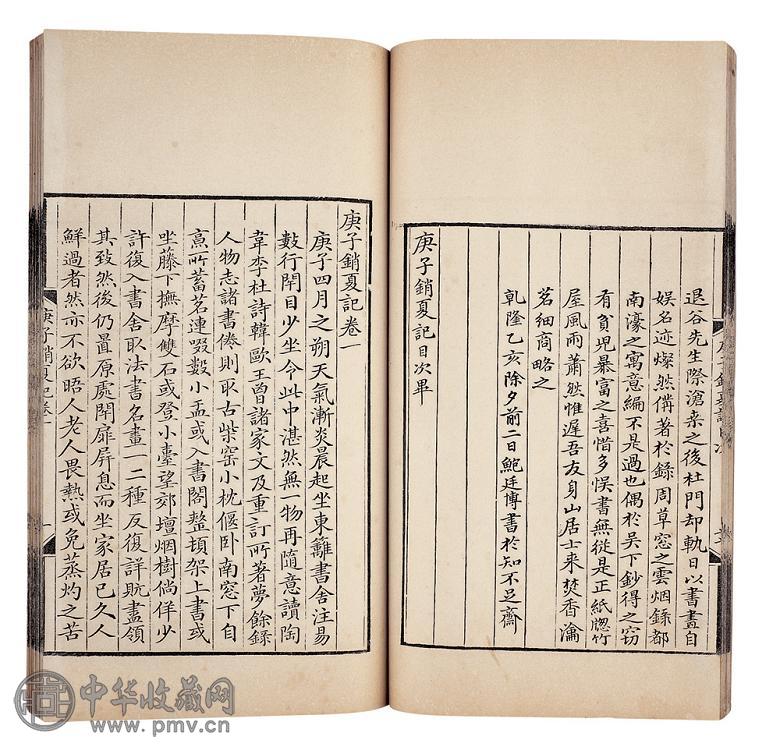 退谷先生際滄桒之後杜門却軌日以書畫自
娱名迹燦然僃著於錄周草窓之雲烟錄都
南濠之寓意編不是過也偶於吴下鈔得之窃
有貧児暴富之喜惜多悞書無從是正紙牎竹
屋風雨蕭然惟遲吾友身山居士来焚香瀹
茗細商略之
乾隆乙亥除夕前二日鲍廷博書於知不足齋
庚子銷夏記目次畢
庚子銷夏記卷一
庚子四月之朔天氣漸炎晨起坐東籬書舍注易
數行閉目少坐令此中湛然無一物再隨意讀陶
韋李杜詩韓歐王曾諸家文及重訂所著夢餘錄
人物志諸書倦則取古柴窑小枕偃卧南窓下自
烹所蓄茗連啜數小盂或入書閣整頓架上書或
坐藤下撫摩雙石或登小臺望郊壇烟樹倘佯少
許復入書舍取法書名畫一二種反復詳玩盡領
其致然後仍置原處閉扉屏息而坐家居已久人
鮮過者然亦不欲晤人老人畏熱或免蒸灼之苦
庚子銷夏記卷一
一
中华收藏网
www.pmv.cn